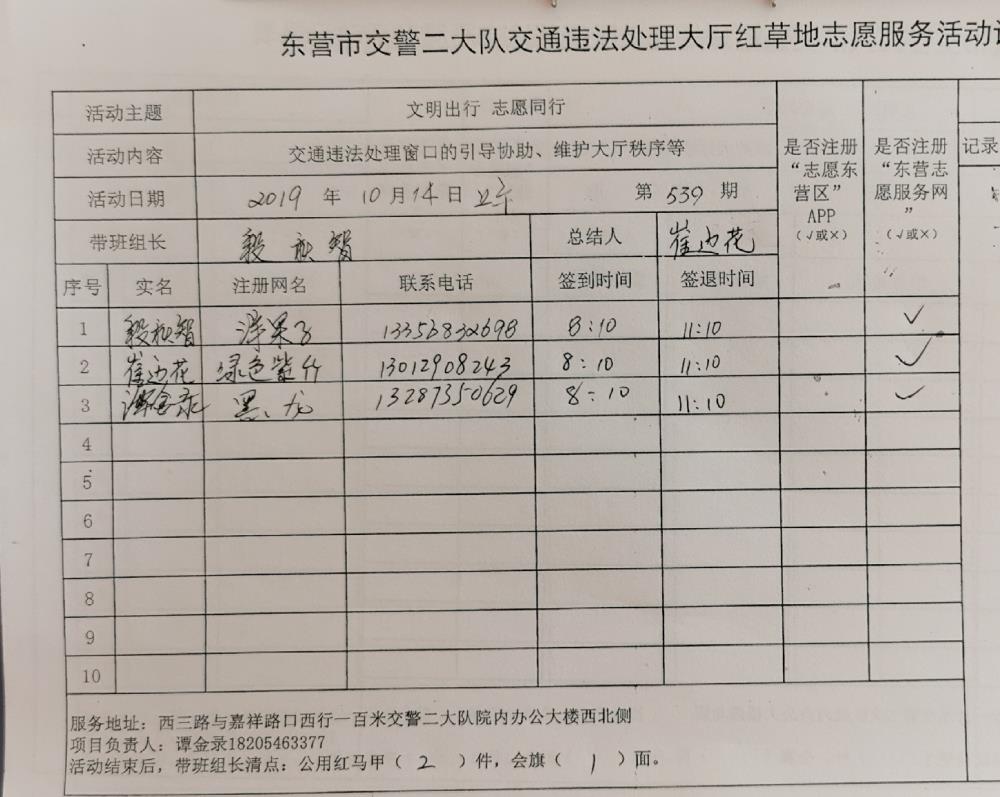 东营市交警二大队交通违法处理大厅红草地志愿服务活动
活动主题 文明出行 志愿同行
活动内容 交通违法处理窗口的引导协助、维护大厅秩序等
活动日期 2019 年 10月14日 上午 第 539 期
带班组长 总结人 崔边花
是否注册“志愿东营区”APP（√或×）
是否注册“东营志愿服务网”（√或×）
记录
序号 实名 注册网名 联系电话 签到时间 签退时间
1 13356832698 8:10 11:10 ✓
2 崔边花 绿色紫竹 13012908243 8:10 11:10 ✓
3 谭金录 黑、龙 13287350629 8:10 11:10 ✓
4
5
6
7
8
9
10
服务地址：西三路与嘉祥路口西行一百米交警二大队院内办公大楼西北侧
项目负责人：谭金录18205463377
活动结束后，带班组长清点：公用红马甲（ 2 ）件，会旗（ 1 ）面。